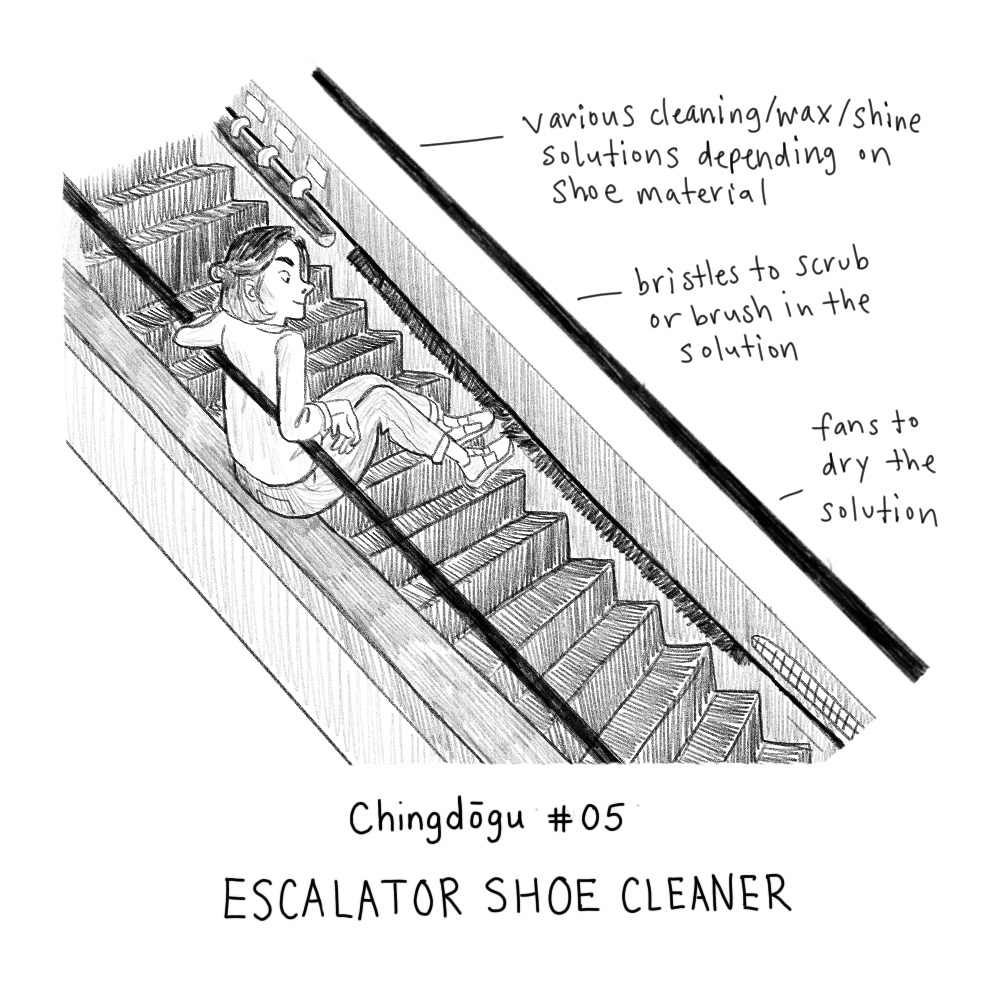 various cleaning/wax/shine
solutions depending on
shoe material
bristles to scrub
or brush in the
solution
fans to
dry the
solution
Chingdōgu #05
ESCALATOR SHOE CLEANER